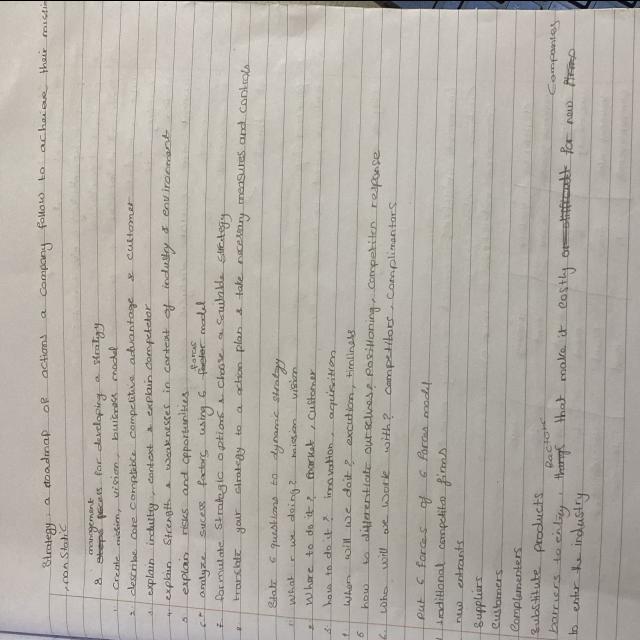 Strategy, a roadmap of actions a company follow to acheive their missi
, non static
management
8 process for developing a strategy
1 Create mission, vision, business model
2 describe core compitable competitive advantage & customer
3 explain industry, context & explain competetor
4 explain strength & weaknesses in context of industry & environment
5 explain risks and opportunities
6 analyze sucess factors using 6 forces model
7 Formulate Strategic options & choose a suitable strategy
8 translate your strategy to a action plan & take necesary measures and controls
State 6 questions to dynamic strategy
1 what r we doing? mission vision
2 Where to do it? market, customer
3 how to do it? innovation, acquisition
4 When will we do it? execution, timliness
5 how to differentiate ourselves? positioning, competition response
6. Who will we work with? competitors, complimentors
Put 6 Forces of 6 Forces model
1 traditional competito firms
new entrants
suppliers
Customers
Complementers
Substitute products
barriers to entry, factors that make it costly for new Companies
to enter the industry